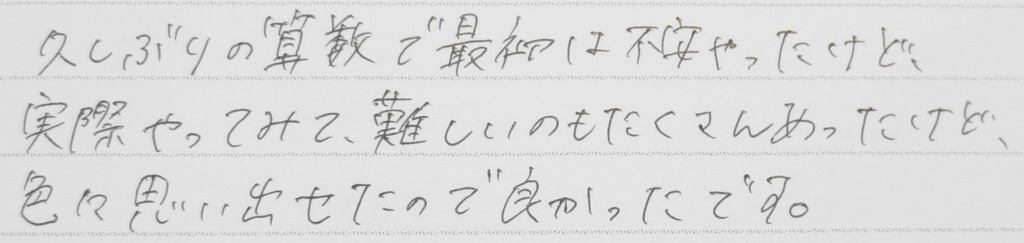 久しぶりの算数で最初は不安やったけど、
実際やってみて、難しいのもたくさんあったけど、
色々思い出せたので良かったです。